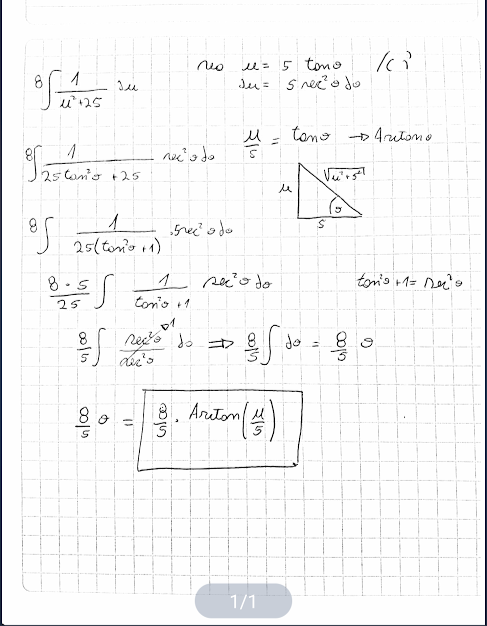 8∫ 1/(u²+25) du    u = 5 tanθ
du = 5 sec²θ dθ
8∫ 1/(25tan²θ + 25) sec²θ dθ    u/5 = tanθ → Arctanθ
u    √(u²+5²)    θ    5
8∫ 1/(25(tan²θ+1)) · 5sec²θ dθ
8·5/25 ∫ 1/(tan²θ+1) sec²θ dθ    tan²θ+1 = sec²θ
8/5 ∫ sec²θ/sec²θ dθ ⇒ 8/5 ∫ dθ = 8/5 θ
1
8/5 θ = 8/5 · Arctan(u/5)
1/1